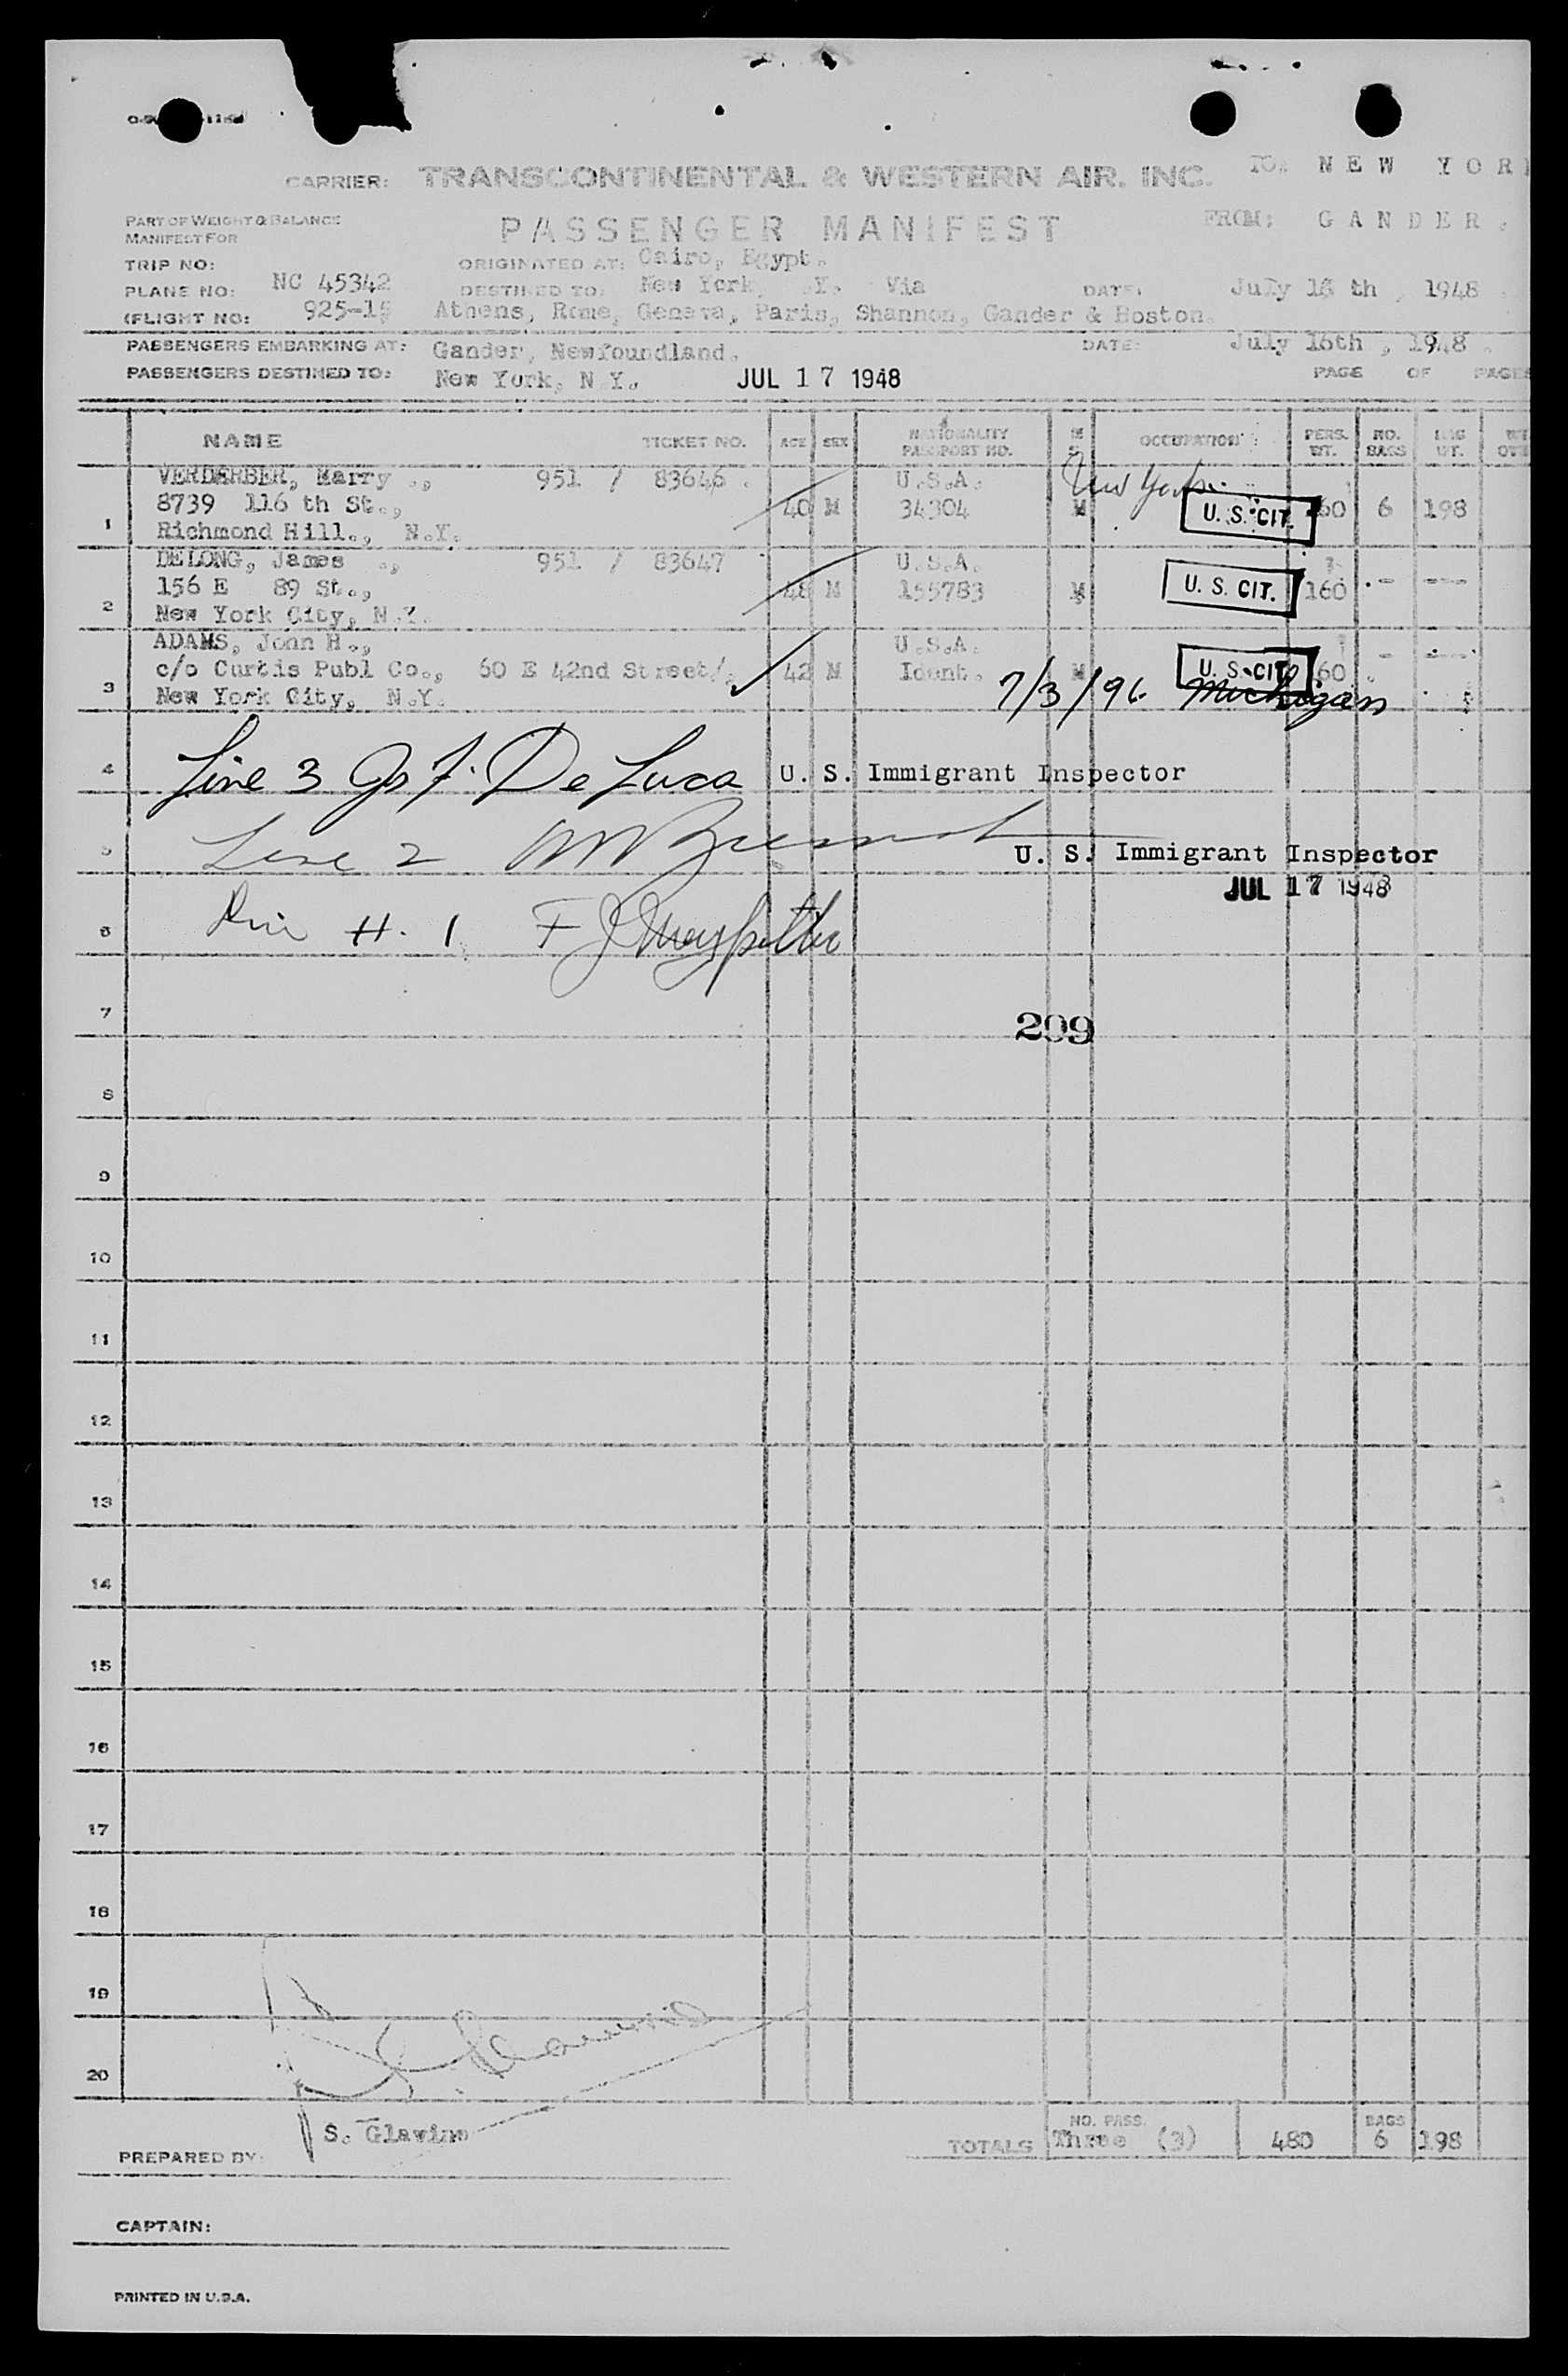 CARRIER: TRANSCONTINENTAL & WESTERN AIR. INC. TO: NEW YOR
PART OF WEIGHT & BALANCE
MANIFEST FOR
PASSENGER MANIFEST FROM: GANDER.
TRIP NO: ORIGINATED AT: Cairo, Egypt.
PLANE NO: NC 45342 DESTINED TO: New York, Y. Via DATE: July 16 th, 1948.
(FLIGHT NO: 925-15 Athens, Rome, Geneva, Paris, Shannon, Gander & Boston.
PASSENGERS EMBARKING AT: Gander, Newfoundland. DATE: July 16th, 1948.
PASSENGERS DESTINED TO: New York, N.Y. JUL 17 1948 PAGE OF PAGES
NAME TICKET NO. AGE SEX NATIONALITY PASSPORT NO. OCCUPATION PERS. WT. NO. BAGS BAG WT.
VERDERBER, Harry ., 951 / 83646. U.S.A. New York
8739 116 th St., 40 M 34304 M U. S. CIT. 160 6 198
1 Richmond Hill., N.Y.
DELONG, James ., 951 / 83647 U.S.A.
156 E 89 St., 48 M 155783 M U. S. CIT. 160 - ---
2 New York City, N.Y.
ADAMS, John H., U.S.A.
c/o Curtis Publ Co., 60 E 42nd Street/, 42 M Ident. M U. S. CIT. 160 -
3 New York City, N.Y. 7/3/96. Michigan
4 Line 3 Gs F. De Luca U. S. Immigrant Inspector
5 Line 2 U. S. Immigrant Inspector
JUL 17 1948
6 H. 1 F J
7
209
8
9
10
11
12
13
14
15
16
17
18
19
20
PREPARED BY: S. Glavine TOTALS NO. PASS. Three (3) 480 BAGS 6 198
CAPTAIN:
PRINTED IN U.S.A.